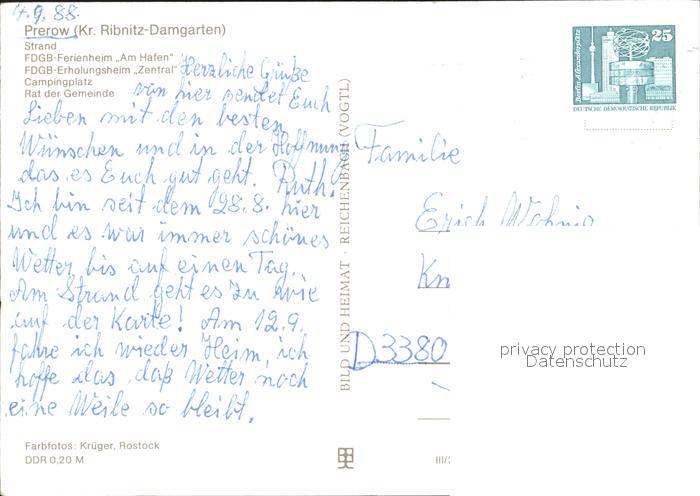 4.9.88.
Prerow (Kr. Ribnitz-Damgarten)
Strand
FDGB-Ferienheim „Am Hafen"
FDGB-Erholungsheim „Zentral"
Campingplatz
Rat der Gemeinde
Herzliche Grüße
von hier sendet Euch
Lieben mit den besten
Wünschen und in der Hoffnung
das es Euch gut geht. Ruth.
Ich bin seit dem 28.8. hier
und es war immer schönes
Wetter bis auf einen Tag.
Am Strand geht es zu wie
auf der Karte! Am 12.9.
fahre ich wieder Heim, ich
hoffe das, daß Wetter noch
eine Weile so bleibt.
Farbfotos: Krüger, Rostock
DDR 0,20 M
BILD UND HEIMAT · REICHENBACH (VOGTL)
III/
25
Berlin, Alexanderplatz
DEUTSCHE DEMOKRATISCHE REPUBLIK
Familie
Erich
Kn
D 3380
privacy protection
Datenschutz